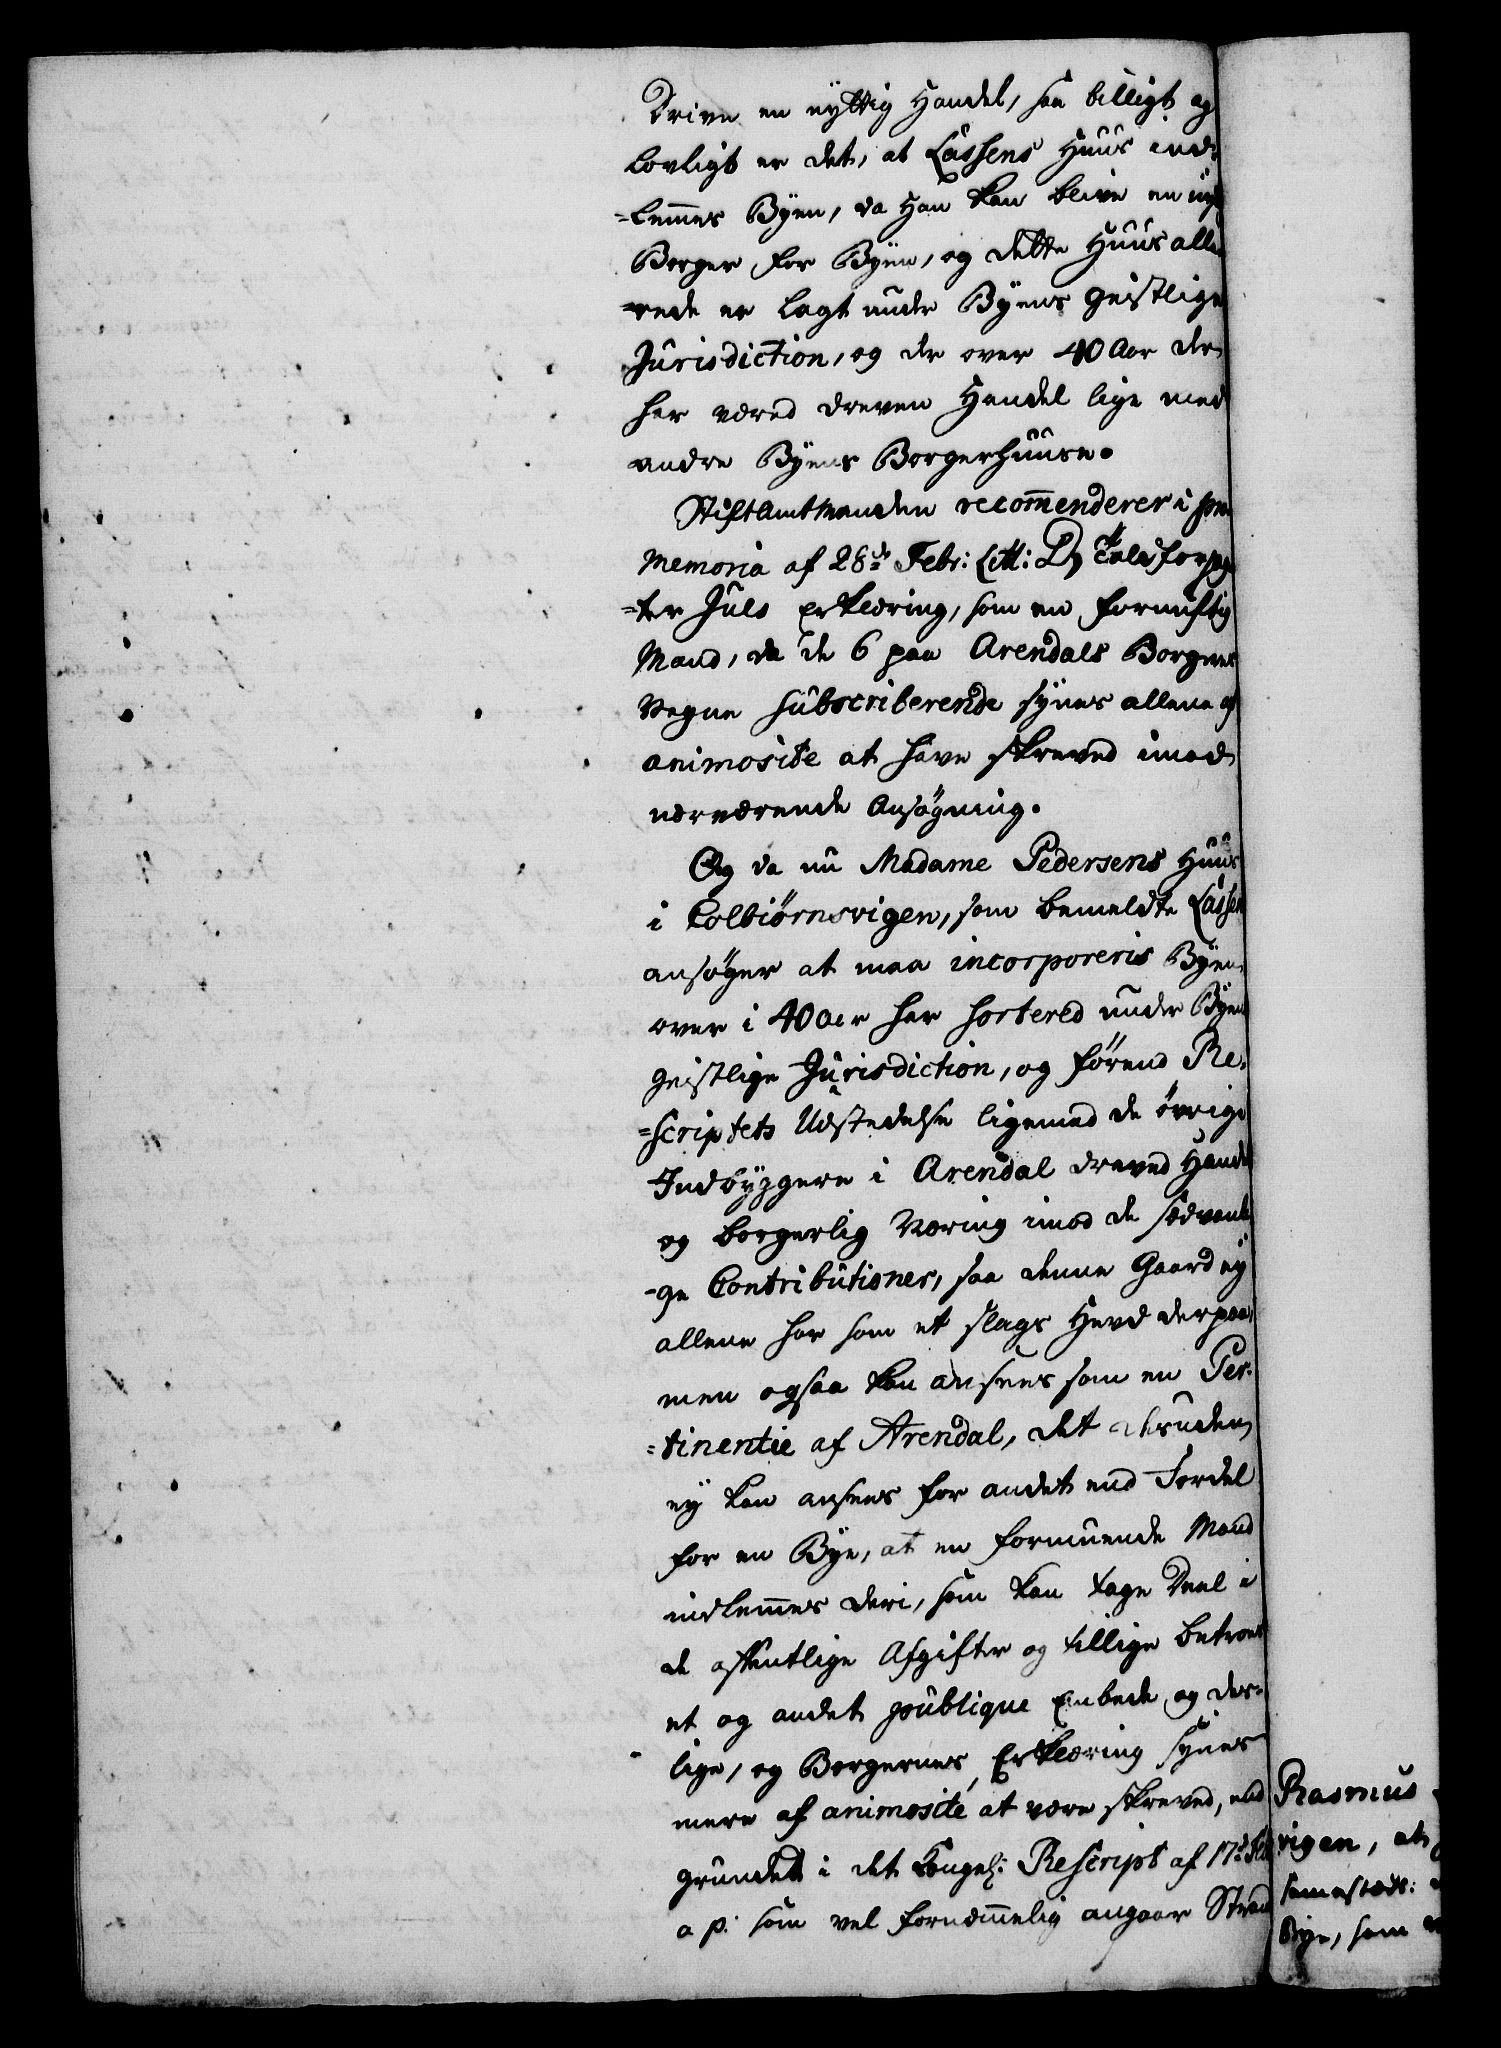 Drive en nyttig Handel, saa billigt og
lovligt er det, at Lassens Huus ind-
=lemmes Byen, da Han kan blive en nye
Borger for Byen, og dette Huus alle
=rede er lagt under Byens geistlige
Jurisdiction, og der over 40 Aar der
har været dreven Handel lige med
andre Byens Borgerhuuse.
Stiftamtmanden recommenderer i pro
Memoria af 28de Febr: Litt: D, Toldforpag
=ter Juls Erklæring, som en fornuftig
Mand, da de 6 paa Arendals Borgeres
Vegne subscriberende synes allene af
animosite at have skreved imod
nærværende Ansøgning.
Og da nu Madame Pedersens Huus
i Colbiörnsvigen, som bemeldte Lassen
ansøger at maa incorporeris Byen,
over i 40 Aar har sortered under Byens
geistlige Jurisdiction, og förend Re-
=scriptets Udstedelse ligemed de övrige
Indbyggere i Arendal dreved Handel
og borgerlig Næring imod de sædvanli
-ge Contributioner, saa denne Gaard ey
allene har som et slags Hævd derpaa,
men ogsaa kan ansees som en Per-
=tinentie af Arendal, det desuden
ey kan ansees for andet end Fordel
for en Bye, at en formuende Mand
indlemmes deri, som kan tage Deel i
de offentlige Afgifter og tillige betroes
et og andet publique Embede og des-
lige, og Borgernes Erklæring synes
mere af animosité at være skreved, end
grundet i det Kongel: Rescript af 17de Febr
a p: som vel fornemmelig angaaer Strand
Rasmus
vigen, at
sammesteds:
Bye, som